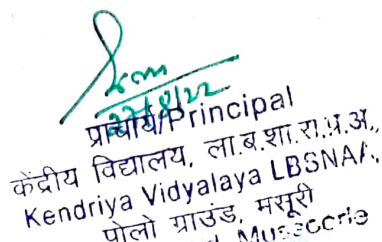 प्राचार्य/Principal
केंद्रीय विद्यालय, ला.ब.शा.रा.प्र.अ.,
Kendriya Vidyalaya LBSNAA,
पोलो ग्राउंड, मसूरी
Mussoorie